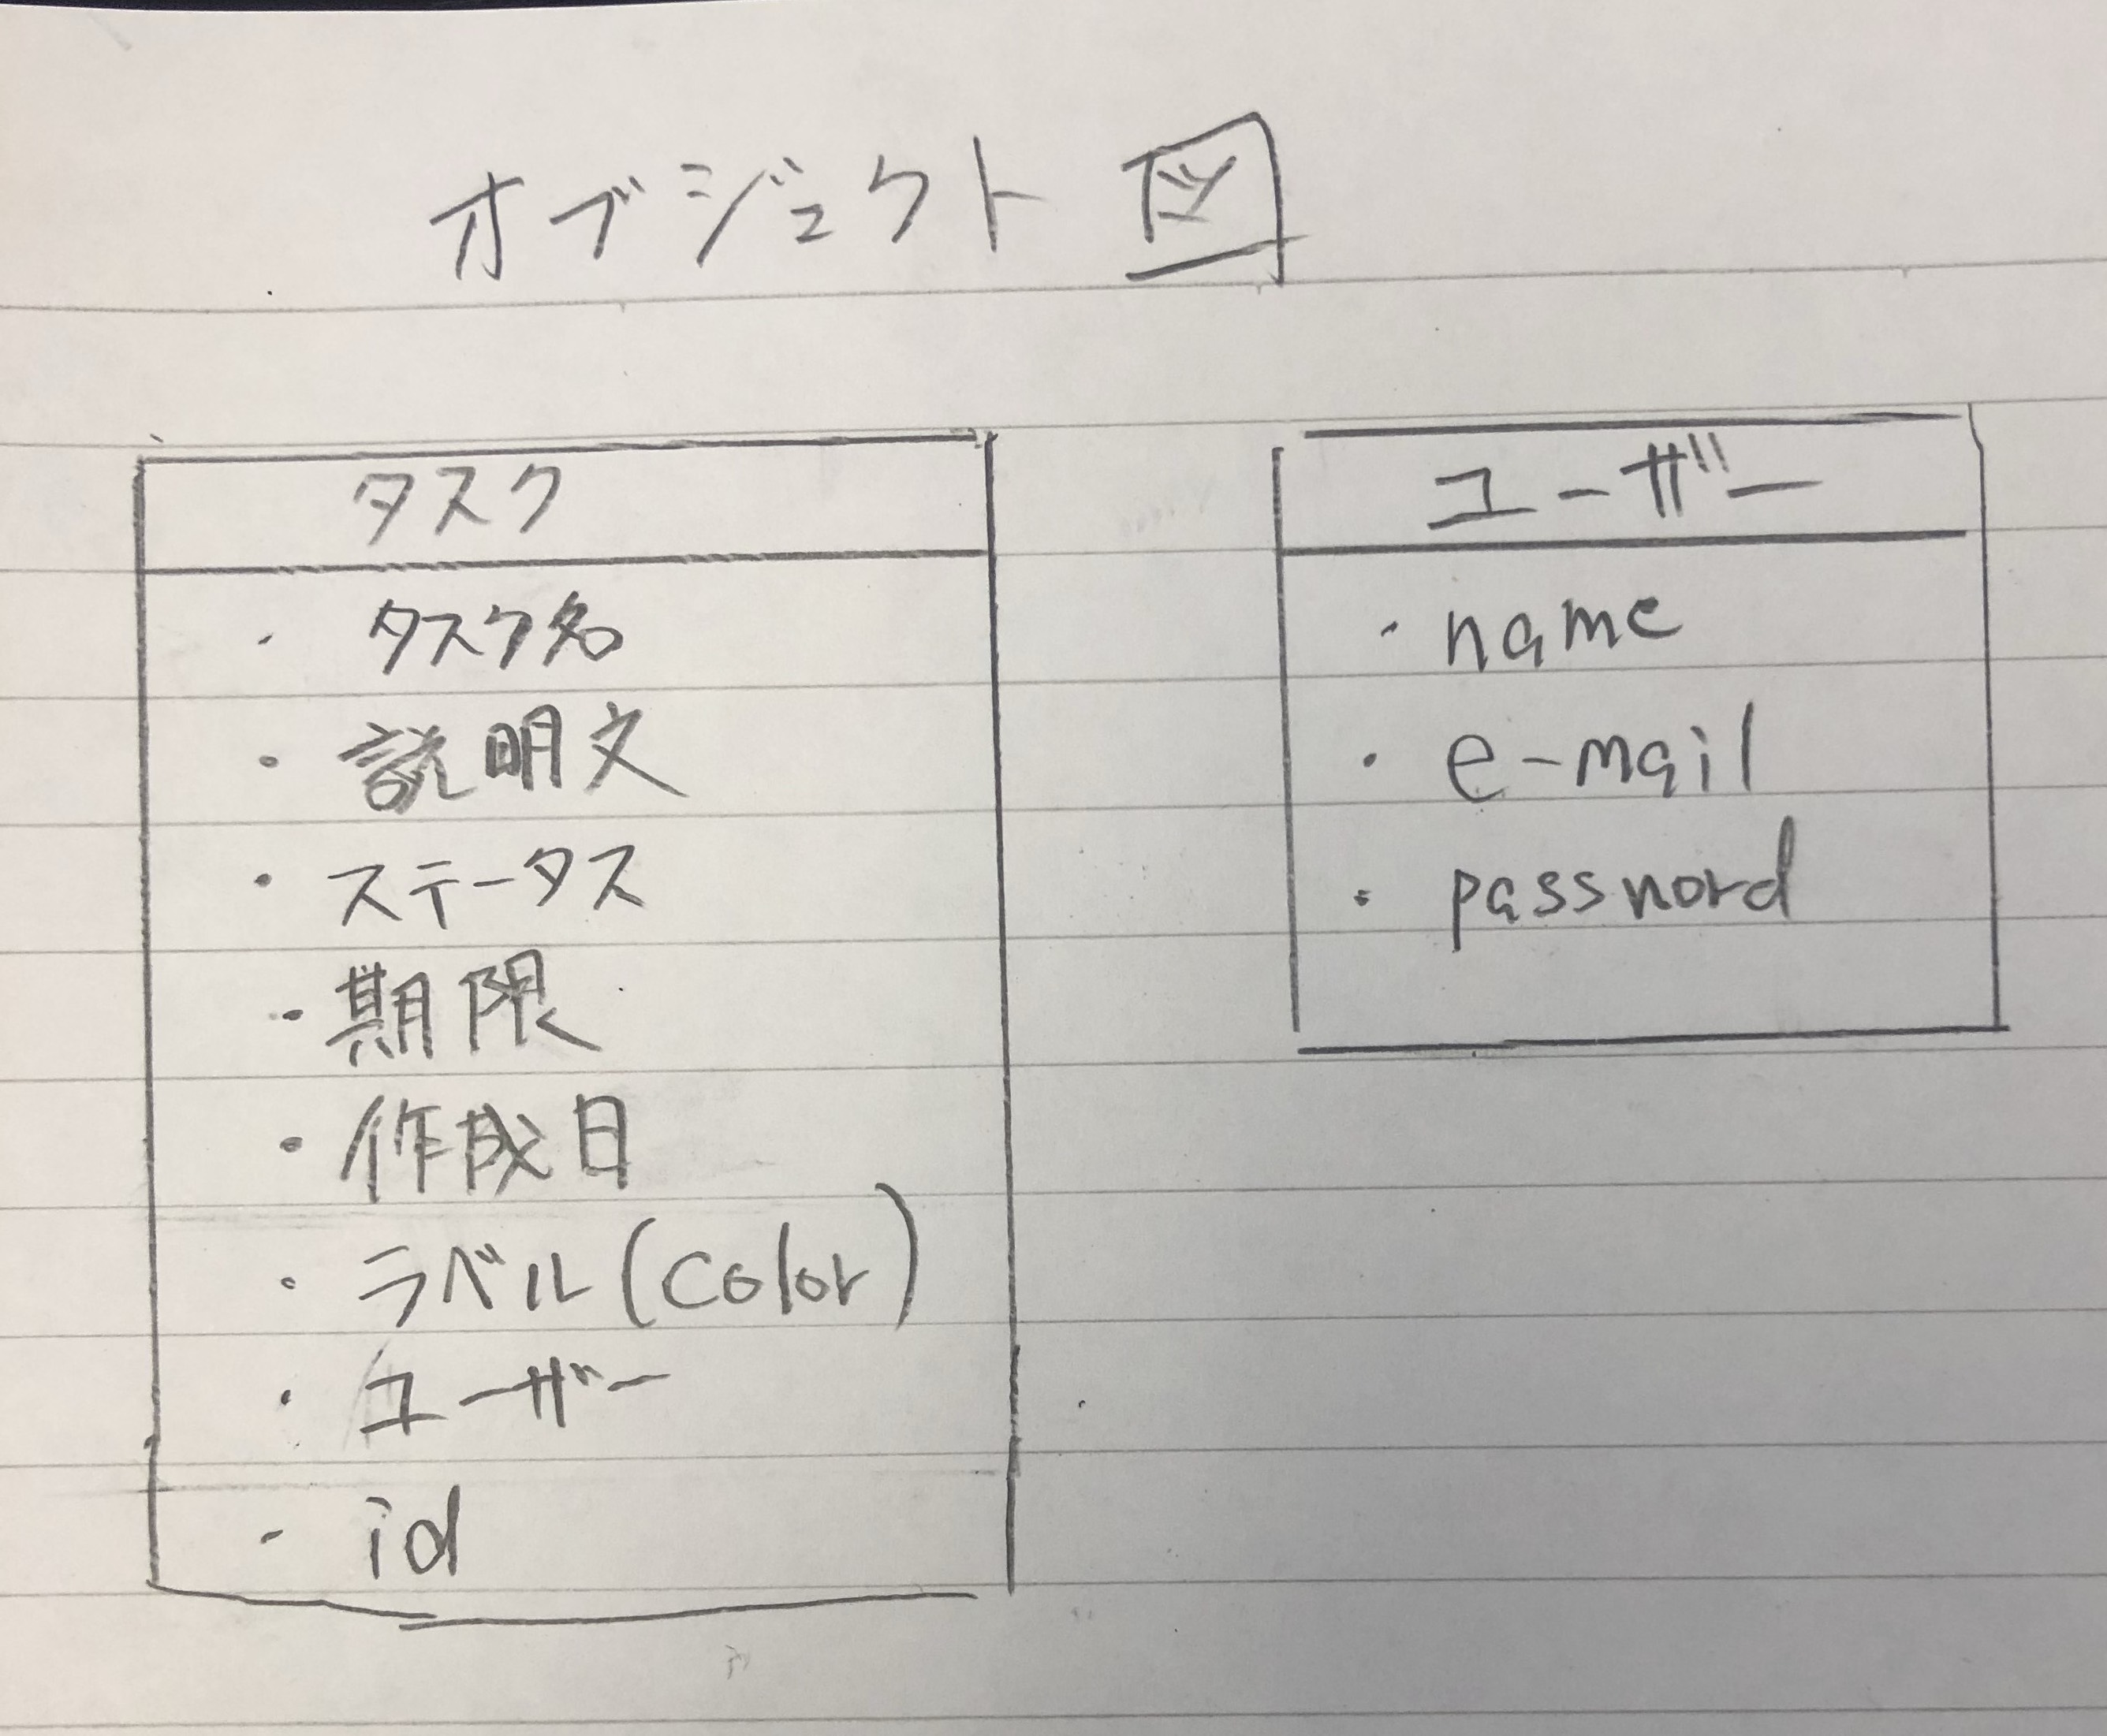 オブジェクト図
タスク
・タスク名
・説明文
・ステータス
・期限
・作成日
・ラベル(color)
・ユーザー
・id
ユーザー
・name
・e-mail
・password